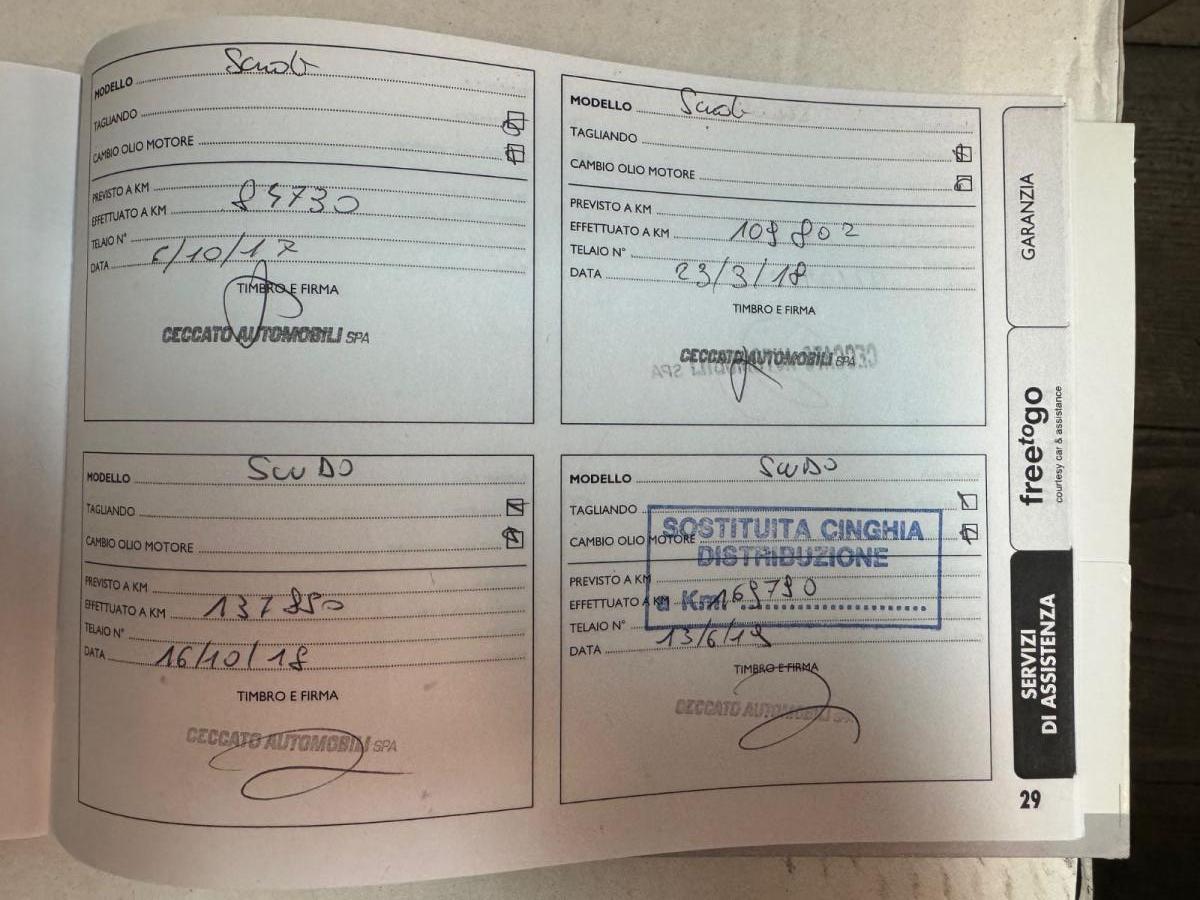 MODELLO Scudo
TAGLIANDO
CAMBIO OLIO MOTORE
PREVISTO A KM
EFFETTUATO A KM 84730
TELAIO N°
DATA 6/10/17
TIMBRO E FIRMA
CECCATO AUTOMOBILI SPA
MODELLO Scudo
TAGLIANDO
CAMBIO OLIO MOTORE
PREVISTO A KM
EFFETTUATO A KM 109802
TELAIO N°
DATA 23/3/18
TIMBRO E FIRMA
CECCATO AUTOMOBILI SPA
MODELLO SCUDO
TAGLIANDO
CAMBIO OLIO MOTORE
PREVISTO A KM
EFFETTUATO A KM 137850
TELAIO N°
DATA 16/10/18
TIMBRO E FIRMA
CECCATO AUTOMOBILI SPA
MODELLO SCUDO
TAGLIANDO
SOSTITUITA CINGHIA
CAMBIO OLIO MOTORE
DISTRIBUZIONE
PREVISTO A KM
EFFETTUATO A KM
a Km. 169790
TELAIO N°
DATA 13/6/19
TIMBRO E FIRMA
CECCATO AUTOMOBILI SPA
GARANZIA
freetogo
courtesy car & assistance
SERVIZI
DI ASSISTENZA
29